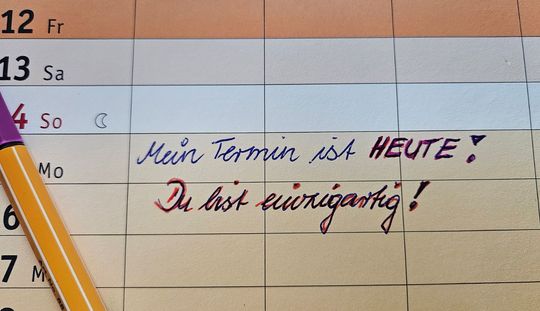 12 Fr
13 Sa
4 So
Mo
Mein Termin ist HEUTE!
Du bist einzigartig!
6
7 M